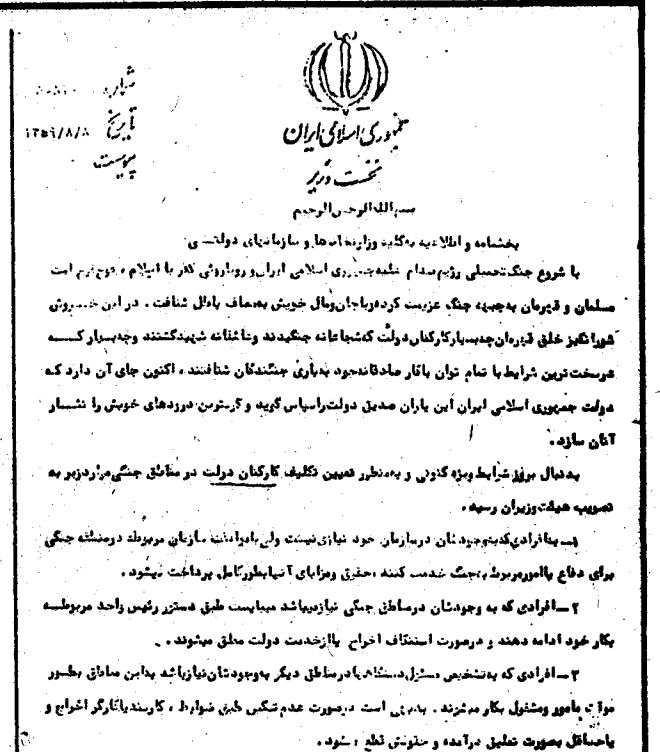 شماره
تاریخ ۱۳۵۹/۸/۸
پیوست
جمهوری اسلامی ایران
نخست وزیر
بسم الله الرحمن الرحیم
بخشنامه و اطلاعیه به کلیه وزارتخانه‌ها و سازمانهای دولتی
با شروع جنگ تحمیلی رژیم صدام علیه جمهوری اسلامی ایران و رویاروئی کفر با اسلام ، امت
مسلمان و قهرمان به جبهه جنگ عزیمت کرده و با جان و مال خویش به مصاف باطل شتافت . در این خروش
شورانگیز خلق قهرمان چه بسیار کارکنان دولت که شجاعانه جنگیدند و عاشقانه شهید گشتند و چه بسیار کسه
در سخت ترین شرایط با تمام توان با کار صادقانه خود به یاری جنگندگان شتافتند ، اکنون جای آن دارد که
دولت جمهوری اسلامی ایران این یاران صدیق دولت را سپاس گوید و گرمترین درودهای خویش را نثار
آنان سازد .
به دنبال بروز شرایط ویژه کنونی و به منظور تعیین تکلیف کارکنان دولت در مناطق جنگی موارد زیر به
تصویب هیئت وزیران رسید .
۱ – به افرادی که به وجودشان در سازمان خود نیازی نیست ولی با موافقت سازمان مربوطه در منطقه جنگی
برای دفاع یا امور مربوط به جنگ خدمت کنند ، حقوق و مزایای آنها بطور کامل پرداخت میشود .
۲ – افرادی که به وجودشان در مناطق جنگی نیاز میباشد میبایست طبق دستور رئیس واحد مربوطه
بکار خود ادامه دهند و در صورت استنکاف اخراج یا از خدمت دولت معلق میشوند .
۳ – افرادی که به تشخیص مسئول دستگاه یا در مناطق دیگر به وجودشان نیاز باشد به این مناطق بطور
موقت مامور و مشغول بکار میشوند . بدیهی است در صورت عدم تمکین طبق ضوابط ، کارمند یا کارگر اخراج و
یا حداقل بصورت تعلیق درآمده و حقوقش قطع میشود .